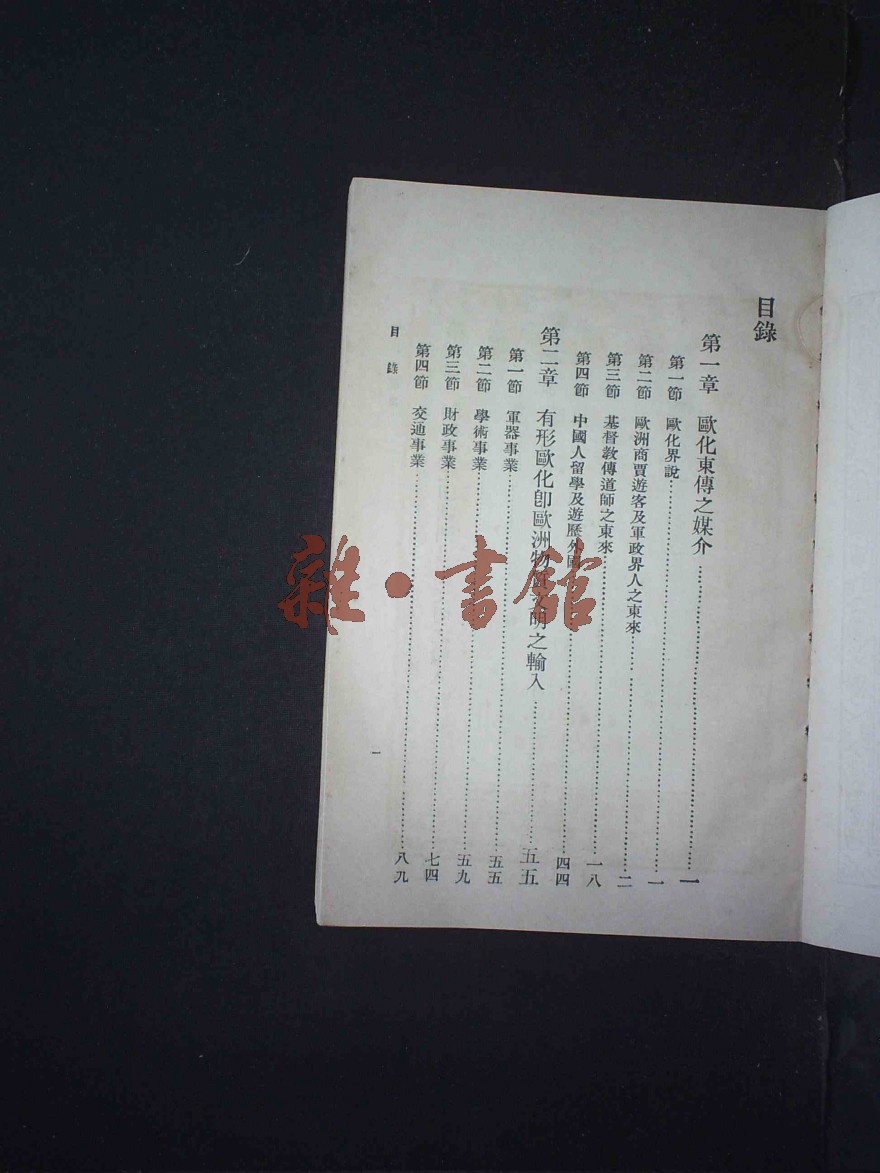 目錄
第一章 歐化東傳之媒介……一
第一節 歐化界說……一
第二節 歐洲商賈遊客及軍政界人之東來……二
第三節 基督教傳道師之東來……一八
第四節 中國人留學及遊歷外國……四四
第二章 有形歐化卽歐洲物質文明之輸入……五五
第一節 軍器事業……五五
第二節 學術事業……五九
第三節 財政事業……七四
第四節 交通事業……八九
目錄
一
雜·書館